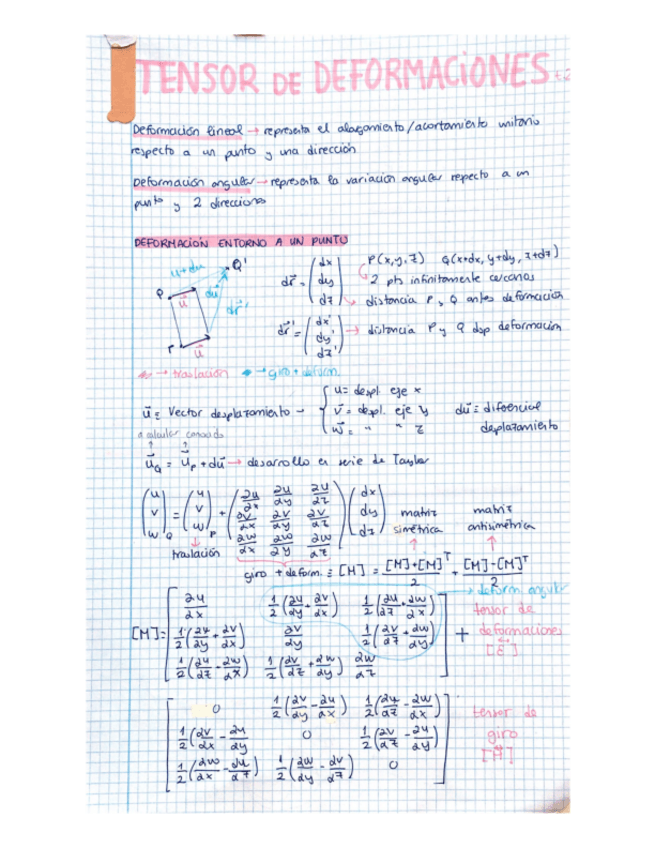 TENSOR DE DEFORMACIONES
Deformación lineal → representa el alargamiento/acortamiento unitario
respecto a un punto y una dirección
Deformación angular → representa la variación angular repecto a un
punto y 2 direcciones
DEFORMACIÓN ENTORNO A UN PUNTO
u+du Q'
Q du u dr'
P u
dr = (dx dy dz) P(x,y,z) Q(x+dx, y+dy, z+dz)
2 pts infinitamente cercanos
→ distancia P y Q antes deformación
dr' = (dx' dy' dz') → distancia P y Q dsp deformación
→ traslación → giro + deform.
u = Vector desplazamiento → { u = despl. eje x
v = despl. eje y
w = " " z
du = diferencial
desplazamiento
a calcular conocido
u_Q = u_P + du → desarrollo en serie de Taylor
(u v w)_Q = (u v w)_P + (∂u/∂x ∂u/∂y ∂u/∂z
∂v/∂x ∂v/∂y ∂v/∂z
∂w/∂x ∂w/∂y ∂w/∂z) (dx dy dz)
traslación
matriz simétrica
matriz antisimétrica
giro + deform. ≡ [M] = [M]+[M]^T/2 + [M]-[M]^T/2
→ deform angular
[M] = [ ∂u/∂x 1/2(∂u/∂y + ∂v/∂x) 1/2(∂u/∂z + ∂w/∂x)
1/2(∂u/∂y + ∂v/∂x) ∂v/∂y 1/2(∂v/∂z + ∂w/∂y)
1/2(∂u/∂z - ∂w/∂x) 1/2(∂v/∂z + ∂w/∂y) ∂w/∂z ] +
tensor de
deformaciones
[E]
[ 0 1/2(∂v/∂y - ∂u/∂x) 1/2(∂u/∂z - ∂w/∂x)
1/2(∂v/∂x - ∂u/∂y) 0 1/2(∂v/∂z - ∂u/∂y)
1/2(∂w/∂x - ∂u/∂z) 1/2(∂w/∂y - ∂v/∂z) 0 ]
tensor de
giro
[H]